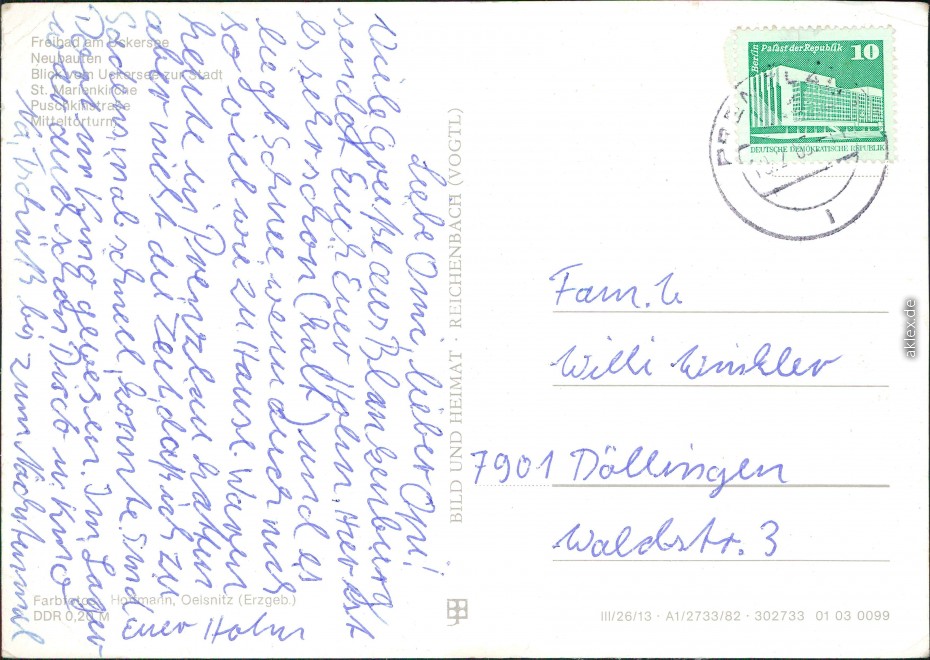 Freibad am Uckersee
Neubauten
Blick vom Uckersee zur Stadt
St. Marienkirche
Puschkinstraße
Mitteltorturm
Liebe Omi lieber Opi!
Viele Grüße aus Blankenburg
sendet Euch Euer Holm. Hier ist
es sehr schon (kalt) und es
liegt Schnee wenn auch nich
so viel wie zu Hause. Waren
heute in Prenzlau hatten
aber nicht die Zeit daß ich zu
mal schnell konnte. Sind
Kino gewesen. Im Lager
auch schon Disco u. Kino
Tschüß bis zum Nächstenmal
Euer Holm
Farbfotos: Hoffmann, Oelsnitz (Erzgeb.)
DDR 0,20 M
BILD UND HEIMAT · REICHENBACH (VOGTL)
Berlin Palast der Republik 10
DEUTSCHE DEMOKRATISCHE REPUBLIK
PRENZLAU
1
Fam.
Willi Winkler
7901 Döllingen
Waldstr. 3
III/26/13 · A1/2733/82 · 302733 01 03 0099
aklex.de